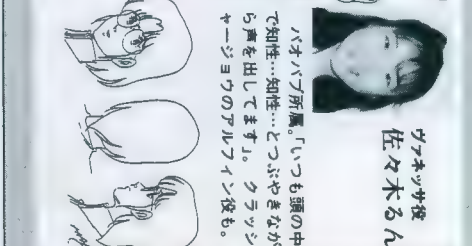 ヴァネッサ役
佐々木るん
バオバブ所属。「いつも頭の中
で知性…知性…とつぶやきなが
ら声を出してます」。クラッシ
ャージョウのアルフィン役も。